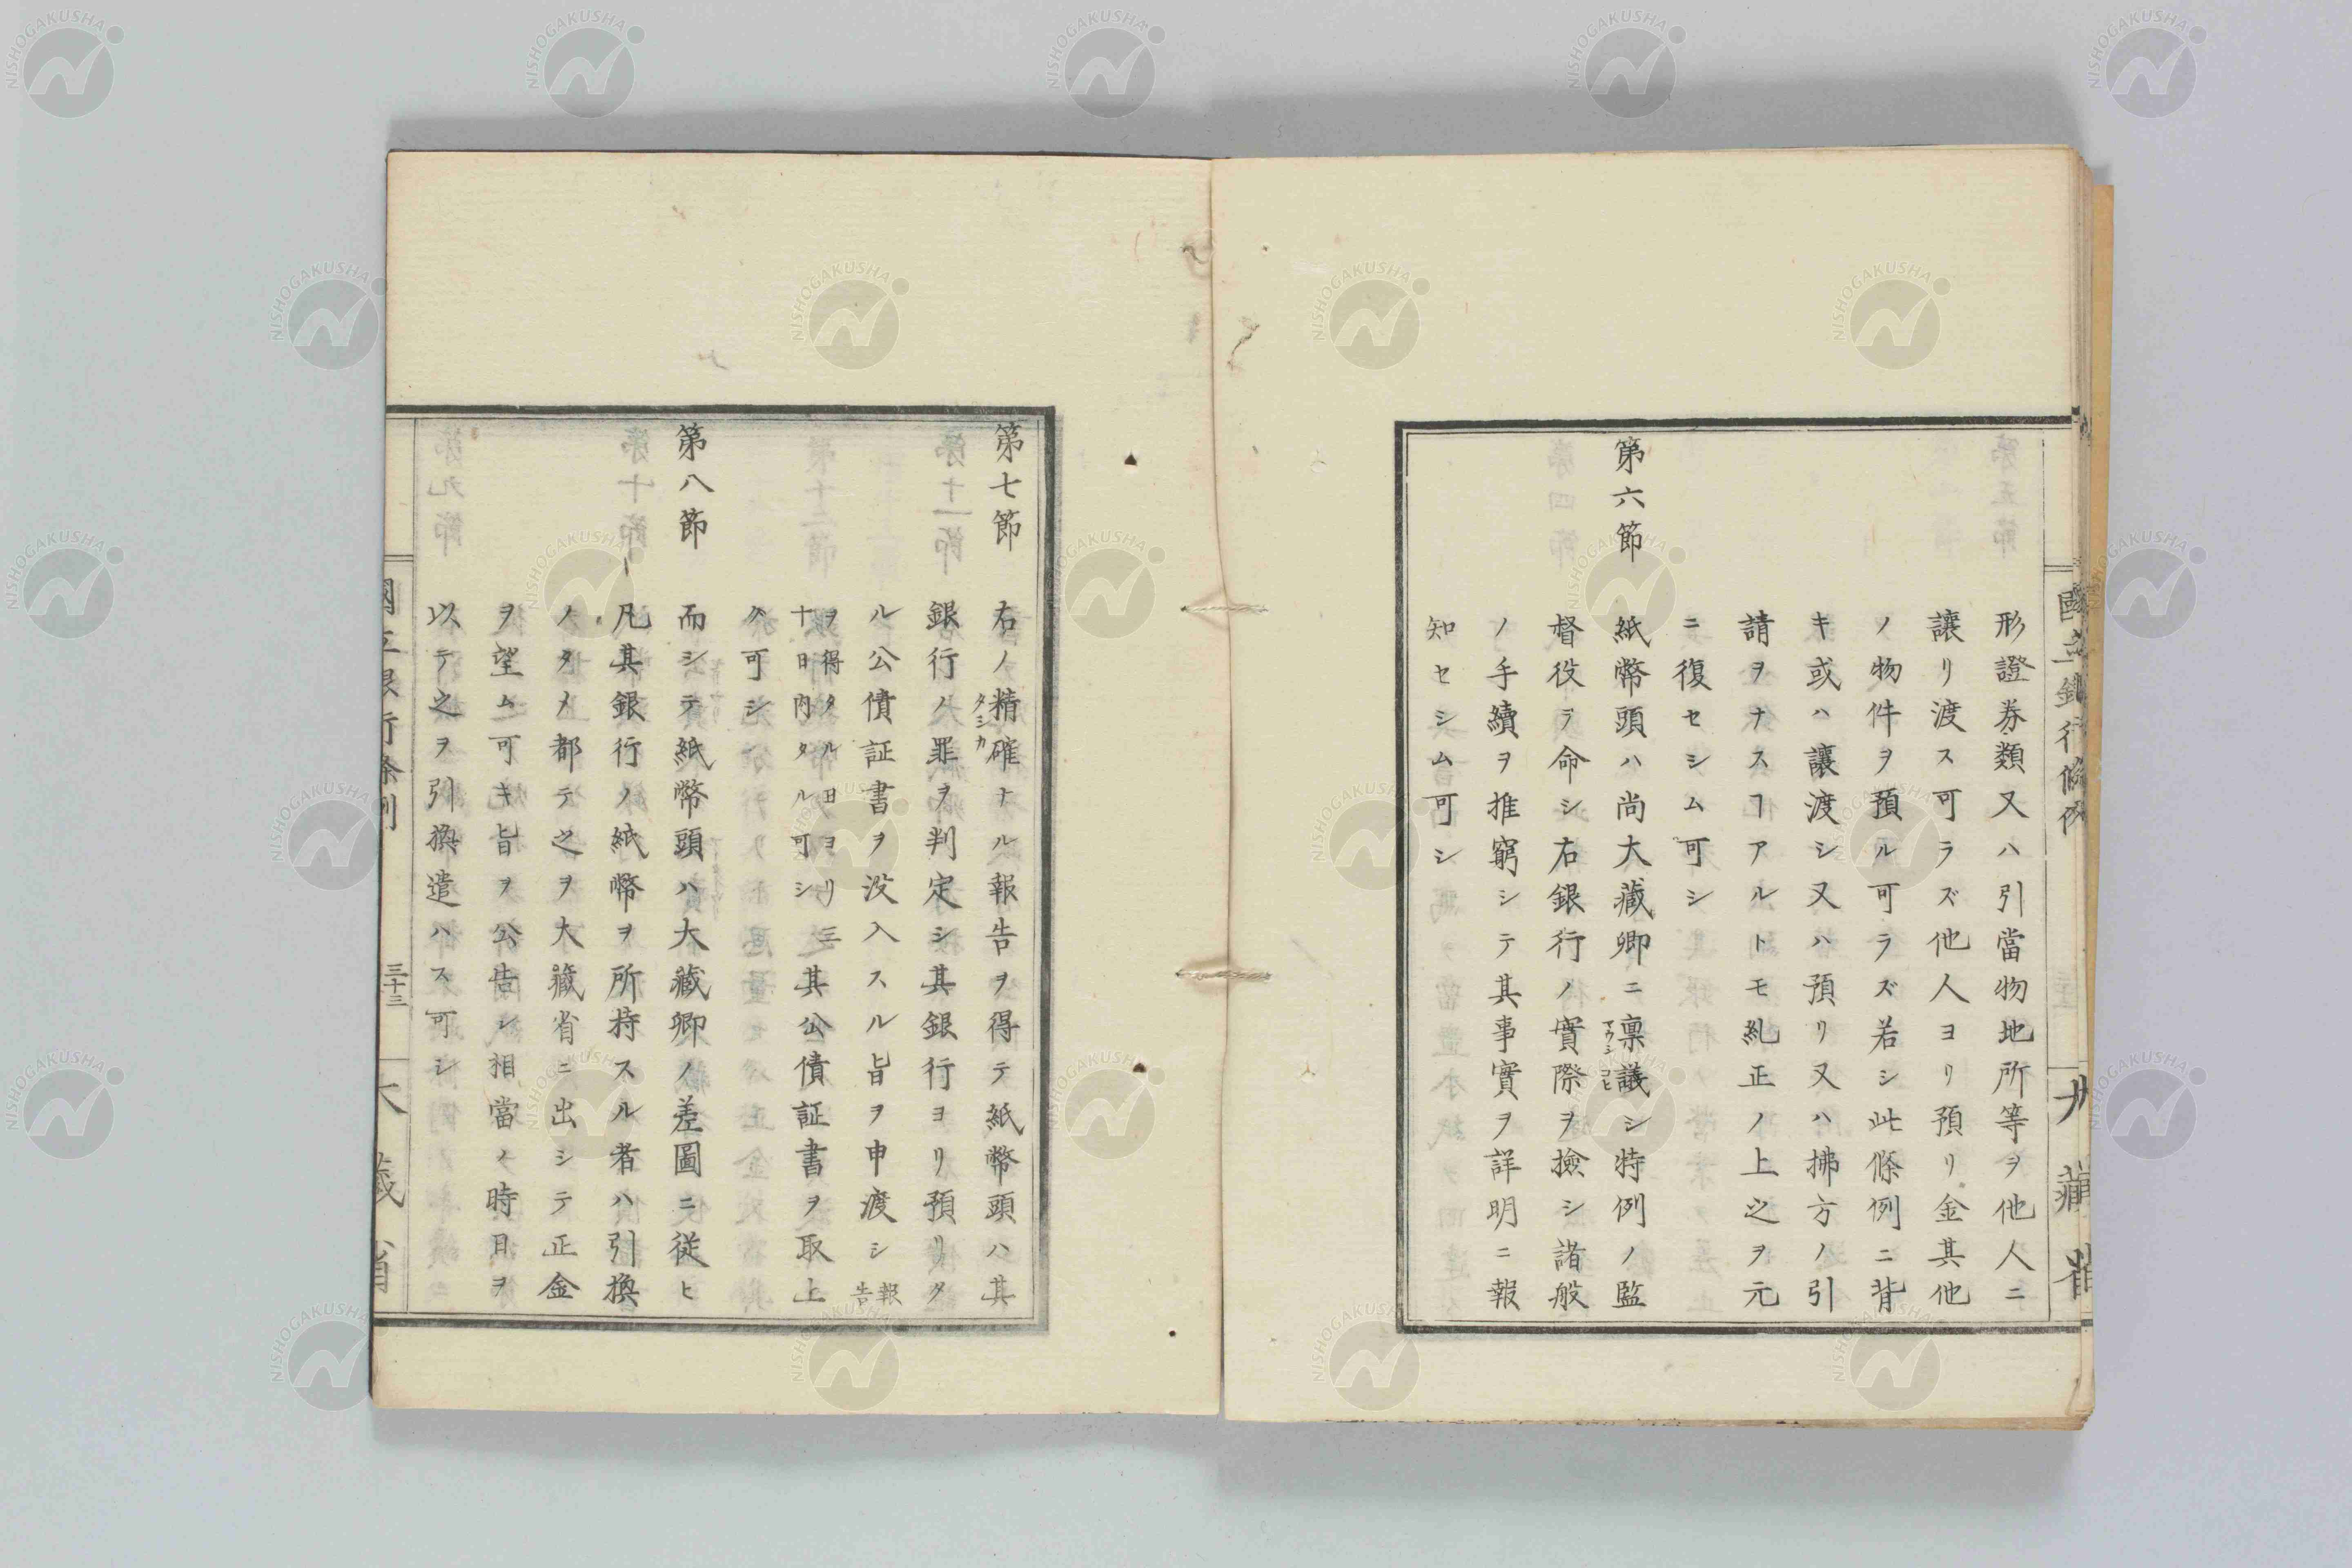 形證券類又ハ引當物地所等ヲ他人ニ
讓リ渡ス可ラズ他人ヨリ預リ金其他
ノ物件ヲ預ル可ラズ若シ此條例ニ背
キ或ハ讓渡シ又ハ預リ又ハ拂方ノ引
請ヲナスヿアルトモ糺正ノ上之ヲ元
ニ復セシム可シ
第六節 紙幣頭ハ尚大藏卿ニ稟議シ特例ノ監
マウシコヒ
督役ヲ命シ右銀行ノ實際ヲ撿シ諸般
ノ手續ヲ推窮シテ其事實ヲ詳明ニ報
知セシム可シ
第七節 右ノ精確ナル報告ヲ得テ紙幣頭ハ其
タシカ
銀行ノ罪ヲ判定シ其銀行ヨリ預リタ
ル公債証書ヲ没入スル旨ヲ申渡シ報告
ヲ得タル日ヨリ三
十日内タル可シ
其公債証書ヲ取上
ク可シ
第八節 而シテ紙幣頭ハ大藏卿ノ差圖ニ從ヒ
凡其銀行ノ紙幣ヲ所持スル者ハ引換
ノタメ都テ之ヲ大藏省ニ出シテ正金
ヲ望ム可キ旨ヲ公告シ相當ノ時日ヲ
以テ之ヲ引換遣ハス可シ
國立銀行條例
三十三
大藏省
NISHOGAKUSHA